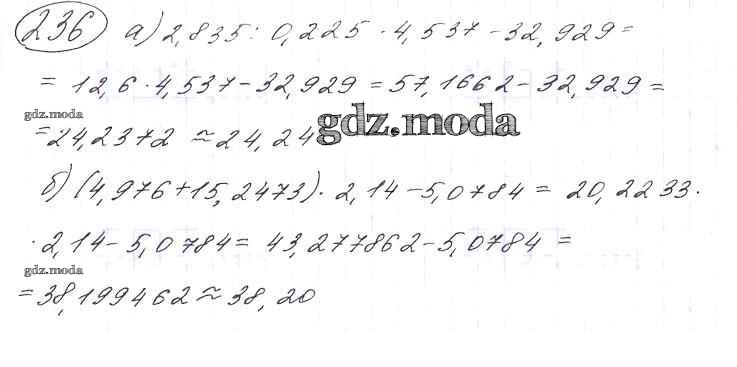 236 а) 2,835 : 0,225 · 4,537 - 32,929 =
= 12,6 · 4,537 - 32,929 = 57,1662 - 32,929 =
gdz.moda
= 24,2372 ≈ 24,24 gdz.moda
б) (4,976 + 15,2473) · 2,14 - 5,0784 = 20,2233 ·
· 2,14 - 5,0784 = 43,277862 - 5,0784 =
gdz.moda
= 38,199462 ≈ 38,20